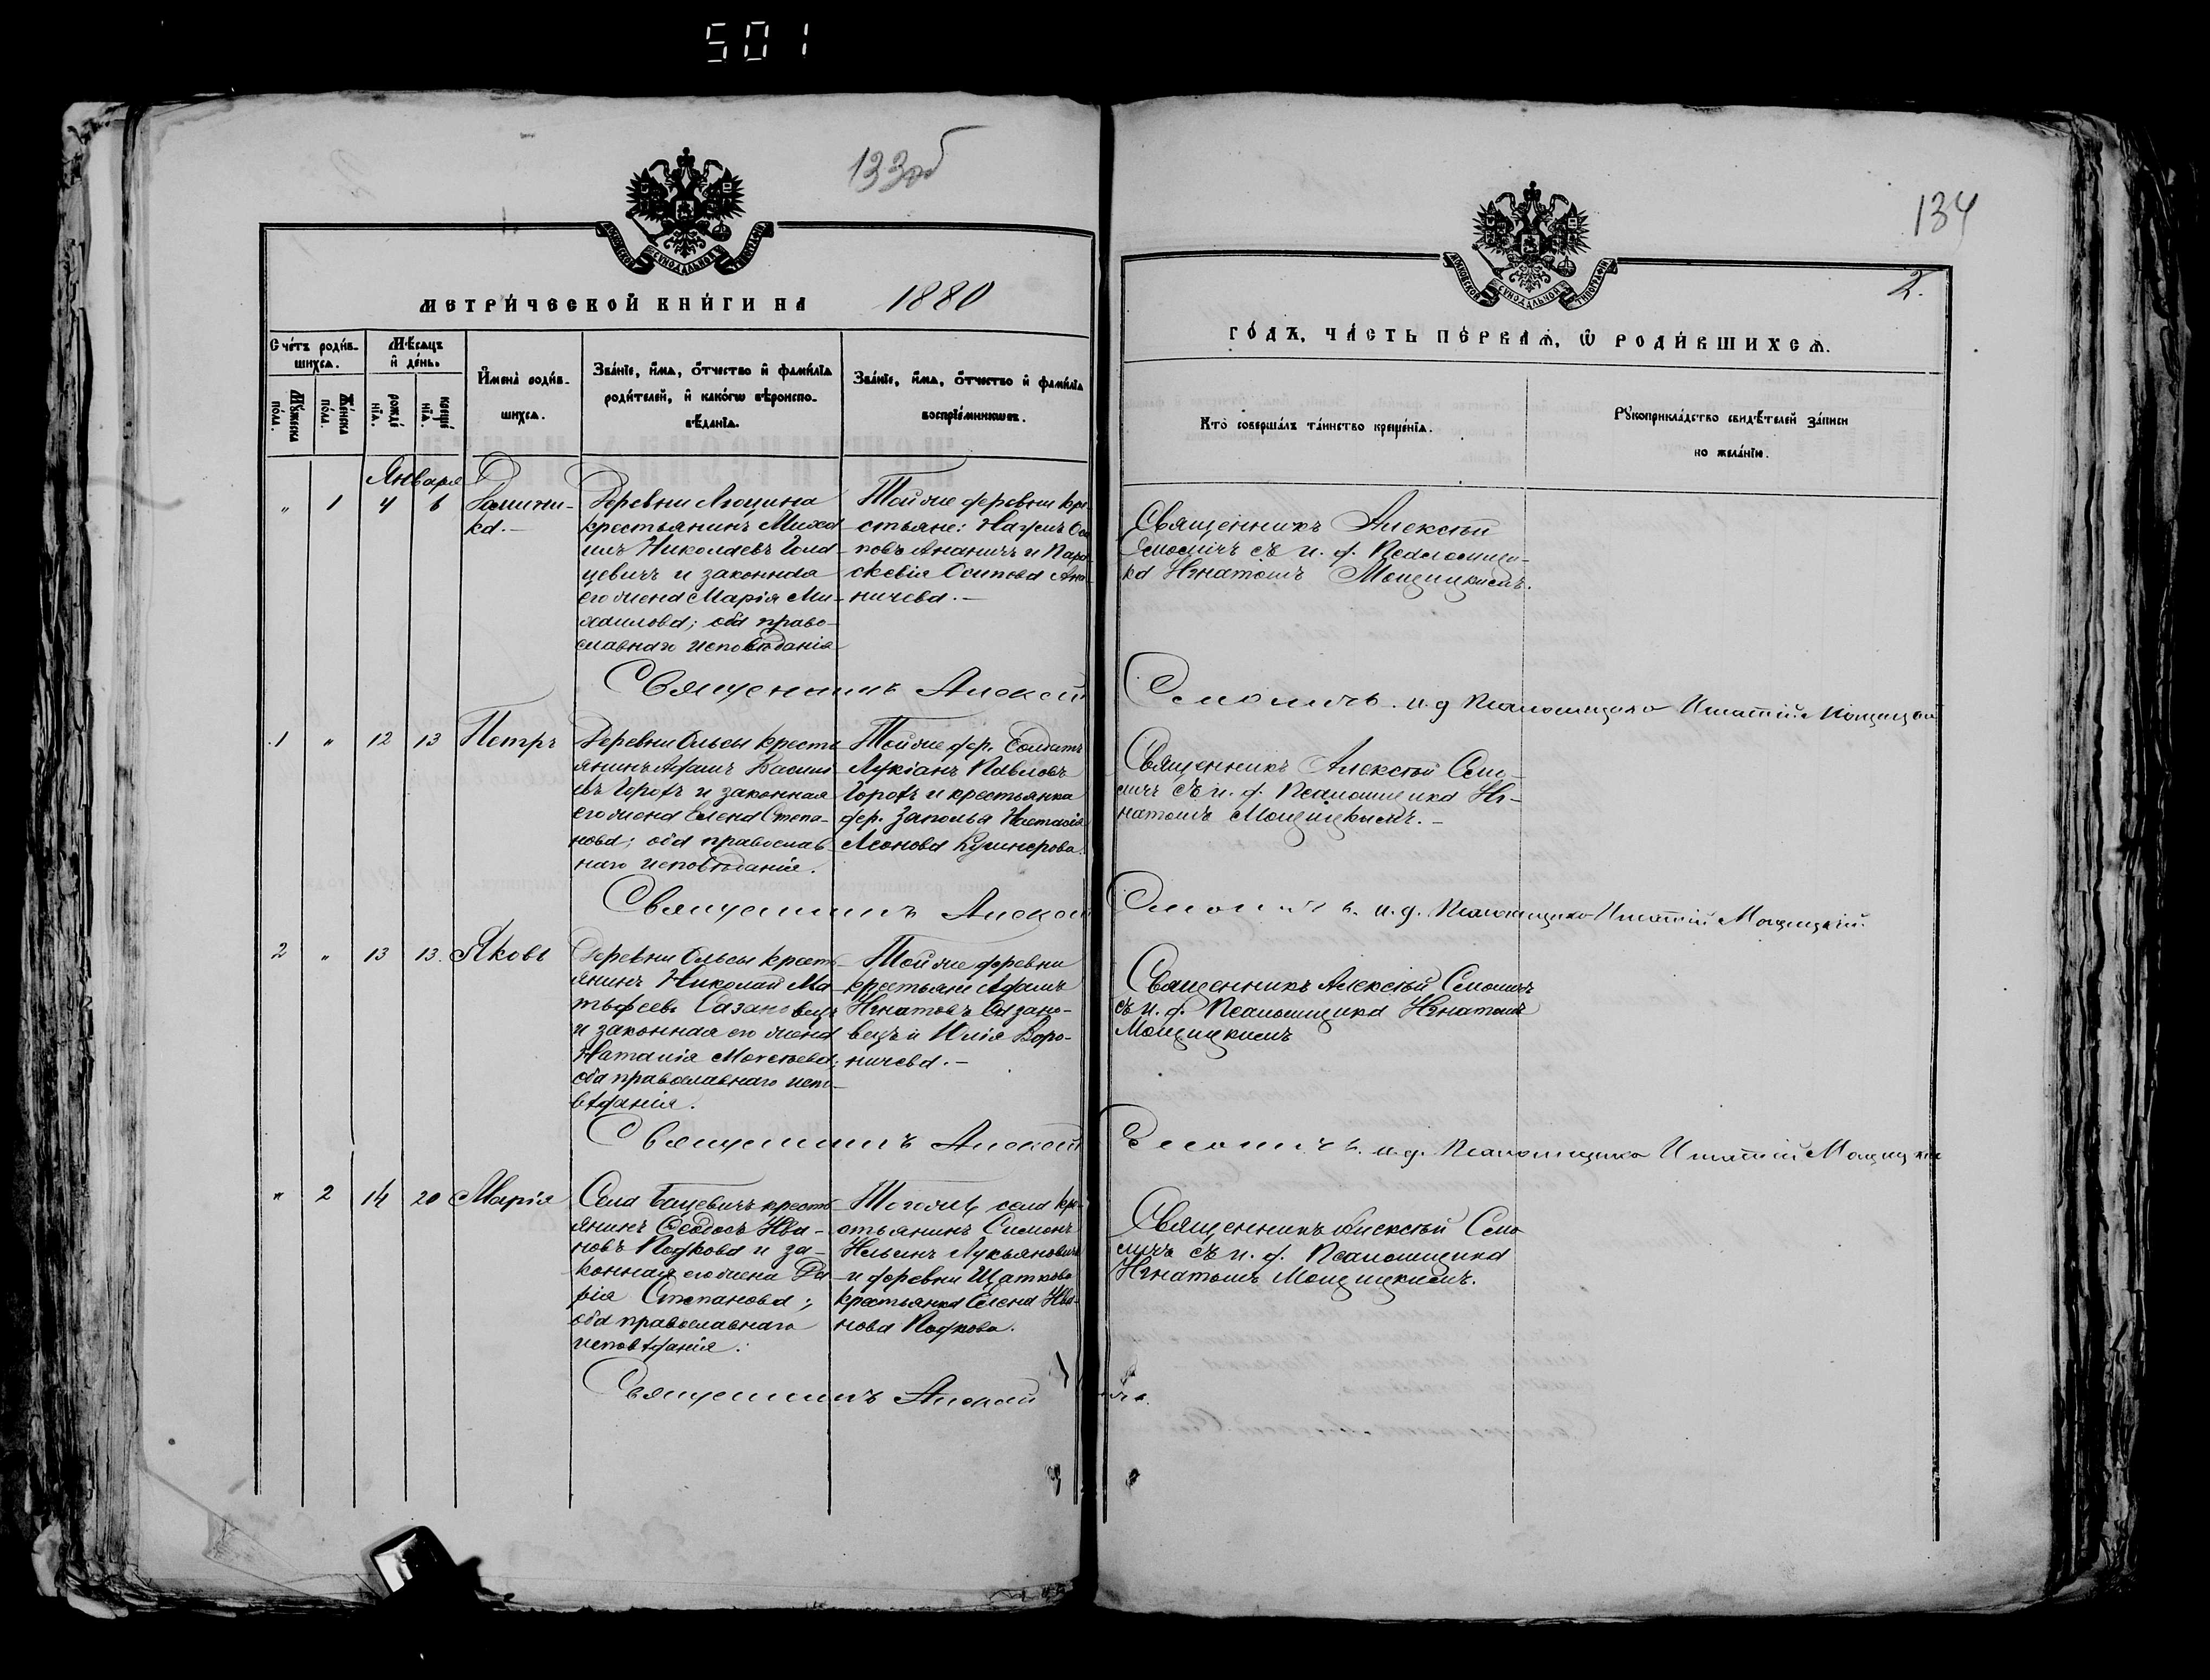 501
133об
134
2.
МОСКОВСКОЙ СѴНОДАЛЬНОЙ ТИПОГРАФІИ
МОСКОВСКОЙ СѴНОДАЛЬНОЙ ТИПОГРАФІИ
МЕТРИ́ЧЕСКОЙ КНИ́ГИ НА 1880
ГО́ДЪ, ЧА́СТЬ ПЕ́РВАѦ, Ѡ҆ РОДИ́ВШИХСѦ.
Сче́тъ роди́в-
шихсѧ.
Мꙋ́жеска
по́ла.
Же́нска
по́ла.
Мѣ́сѧцъ
и҆ де́нь.
рожде́
нїѧ.
креще́
нїѧ.
И҆мена̀ роди́в-
шихсѧ.
Зва́нїе, и҆́мѧ, ѻ҆́тчество и҆ фами́лїѧ
роди́телей, и҆ како́гѡ вѣроиспо-
вѣ́данїѧ.
Зва́нїе, и҆́мѧ, ѻ҆́тчество и҆ фами́лїѧ
воспрїе́мникѡвъ.
Кто̀ соверша́лъ та́инство креще́нїѧ.
Рꙋкоприкла́дство свидѣ́телей за́писи
по жела́нїю.
Января
„ 1 4 6 Домини-
ка.—
Деревни
крестьянинъ Миха
илъ Николаевъ Гола
цевичъ и законная
его жена Марія Ми-
хаилова; оба право-
славнаго исповѣданія
Той же деревни кре-
стьяне: Наумъ Оси
повъ Ананичъ и Пара
скевія Осипова Ана
ничева.—
Священникъ Алексѣй
Смоличъ съ и. д. Псаломщи-
ка Игнатомъ Мощицкимъ.
Священникъ Алексѣй Смоличъ. и.д Псаломщика Игнатій Мощицкій
1 „ 12 13 Петръ
Деревни Ольсы кресть
янинъ Адамъ Васил
евъ Городъ и законная
его жена Елена Степа-
нова; оба православ
наго исповѣданія.
Той же дер. Солдатъ
Лукіанъ Павловъ
Городъ и крестьянка
дер. Заполья Настасія
Леонова Кушнерова.
Священникъ Алексѣй Смо-
личъ съ и. д. Псаломщика Иг-
натомъ Мощицкимъ.—
Священникъ Алексѣй Смоличъ. и.д. Псаломщика Игнатій Мощицкій.
2 „ 13 13. Яковъ
Деревни Ольсы кресть-
янинъ Николай Ма-
тѳеевъ Сазановецъ
и законная его жена
Наталія Моисеева;
оба православнаго испо-
вѣданія.
Той же деревни
крестьяне Адамъ
Игнатовъ Сазано-
вецъ и Юлія Воро-
ничева.—
Священникъ Алексѣй Смоличъ
съ и. д. Псаломщика Игнатомъ
Мощицкимъ
Священникъ Алексѣй Смоличъ. и.д. Псаломщика Игнатій Мощицкій
„ 2 14 20 Марія
Села Бацевичъ кресть
янинъ Ѳеодосъ Ива-
новъ Подкова и за-
конная его жена Да-
рія Степанова;
оба православнаго
исповѣданія.
Того же села кре-
стьянинъ Симонъ
Ильинъ Лукьяновичъ
и деревни Щаткова
крестьянка Елена Ива-
нова Подкова.
Священникъ Алексѣй Смо
личъ съ и. д. Псаломщика
Игнатомъ Мощицкимъ.
Священникъ Алексѣй